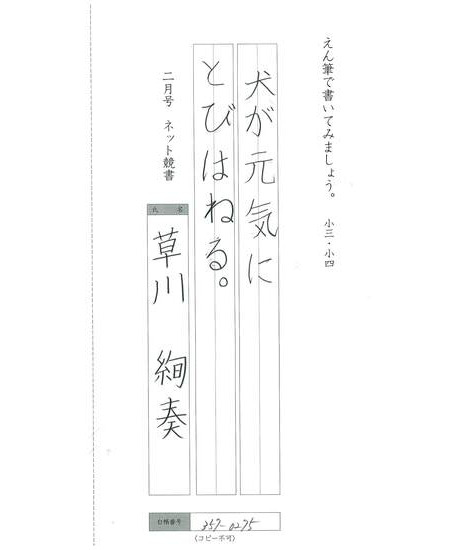 えん筆で書いてみましょう。 小三・小四
犬が元気に
とびはねる。
二月号 ネット競書
氏 名
草川 絢奏
会員番号 357-0275
(コピー不可)